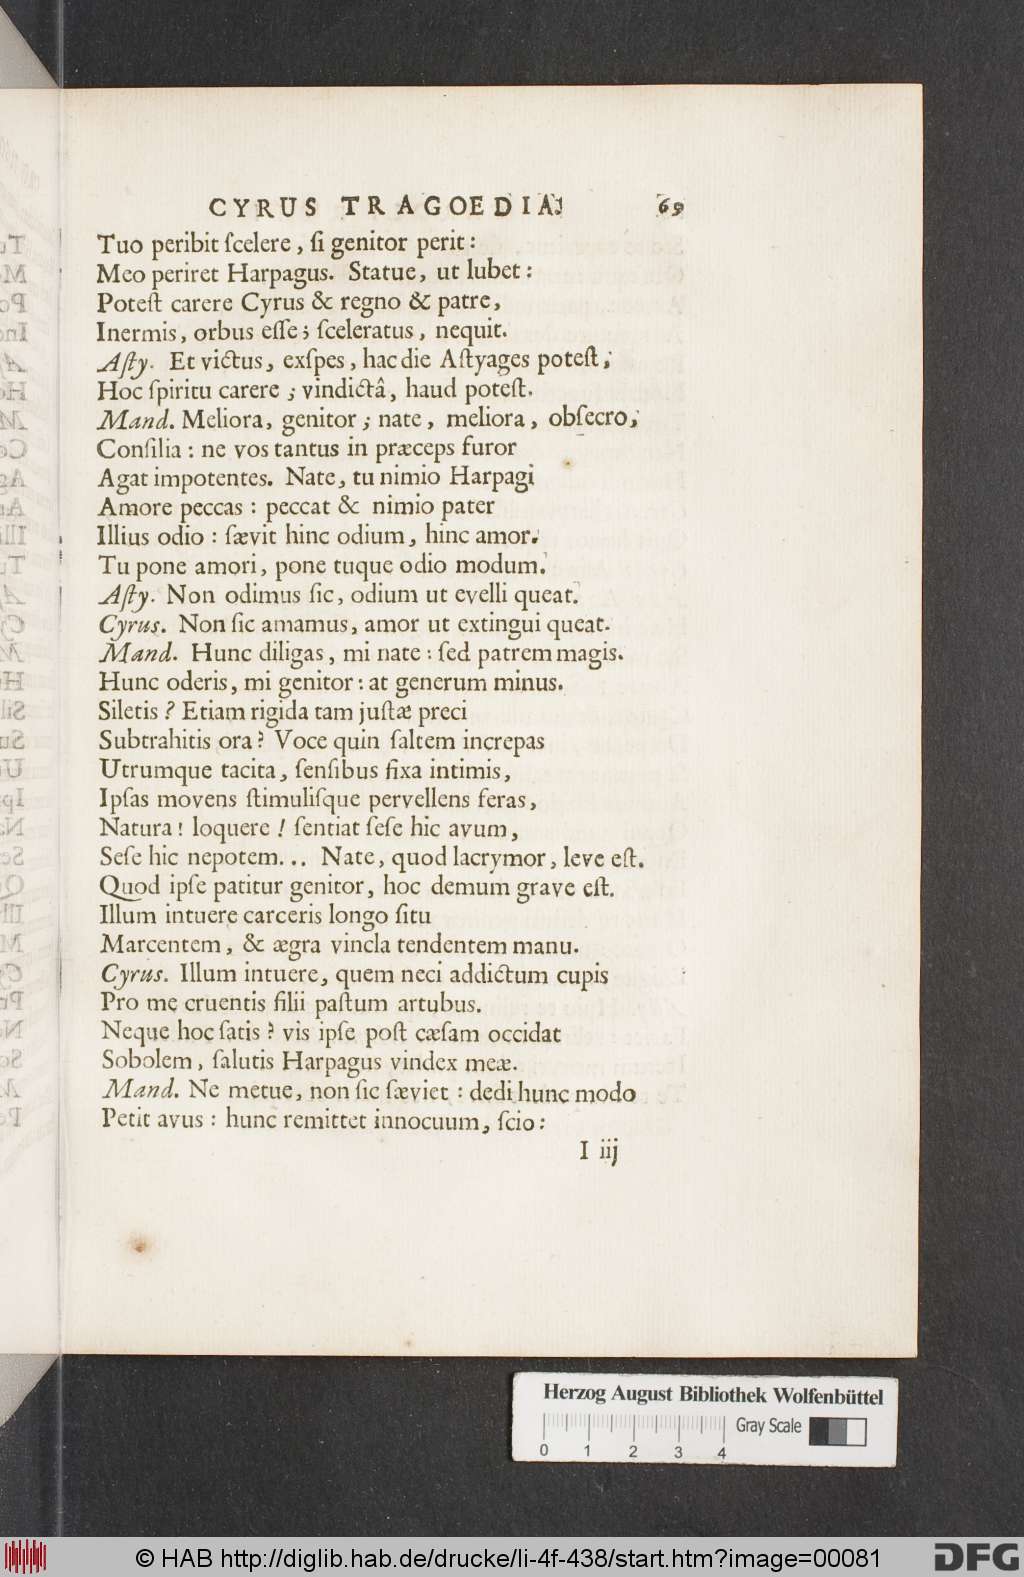 CYRUS TRAGOEDIA. 69
Tuo peribit ſcelere, ſi genitor perit:
Meo periret Harpagus. Statue, ut lubet:
Poteſt carere Cyrus & regno & patre,
Inermis, orbus eſſe; ſceleratus, nequit.
Aſty. Et victus, exſpes, hac die Aſtyages poteſt;
Hoc ſpiritu carere; vindictâ, haud poteſt.
Mand. Meliora, genitor; nate, meliora, obſecro,
Conſilia: ne vos tantus in præceps furor
Agat impotentes. Nate, tu nimio Harpagi
Amore peccas: peccat & nimio pater
Illius odio: ſævit hinc odium, hinc amor.
Tu pone amori, pone tuque odio modum.
Aſty. Non odimus ſic, odium ut evelli queat.
Cyrus. Non ſic amamus, amor ut extingui queat.
Mand. Hunc diligas, mi nate: ſed patrem magis.
Hunc oderis, mi genitor: at generum minus.
Siletis? Etiam rigida tam juſtæ preci
Subtrahitis ora? Voce quin ſaltem increpas
Utrumque tacita, ſenſibus fixa intimis,
Ipſas movens ſtimuliſque pervellens feras,
Natura! loquere! ſentiat ſeſe hic avum,
Seſe hic nepotem... Nate, quod lacrymor, leve eſt.
Quod ipſe patitur genitor, hoc demum grave eſt.
Illum intuere carceris longo ſitu
Marcentem, & ægra vincla tendentem manu.
Cyrus. Illum intuere, quem neci addictum cupis
Pro me cruentis filii paſtum artubus.
Neque hoc ſatis? vis ipſe poſt cæſam occidat
Sobolem, ſalutis Harpagus vindex meæ.
Mand. Ne metue, non ſic ſæviet: dedi hunc modo
Petit avus: hunc remittet innocuum, ſcio:
I iij
Herzog August Bibliothek Wolfenbüttel
Gray Scale
0 1 2 3 4
© HAB http://diglib.hab.de/drucke/li-4f-438/start.htm?image=00081
DFG